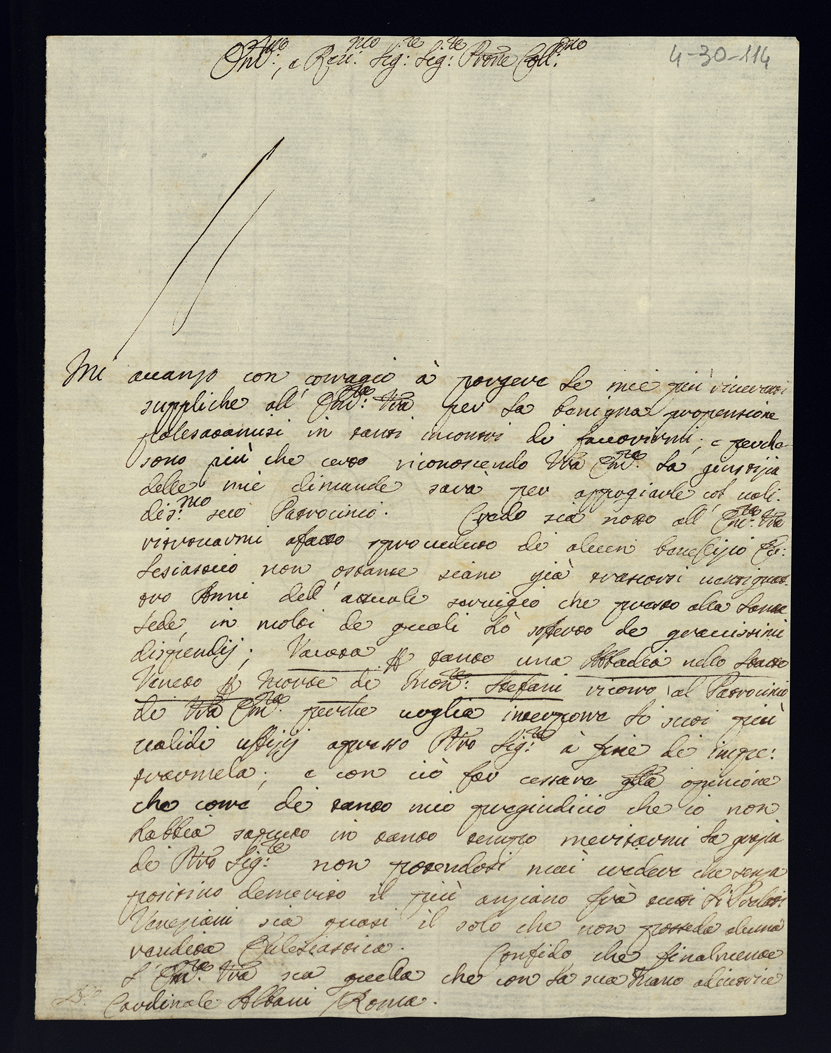 Em:mo, e Rev:mo Sig:re Sig:re Prone Coll:mo
4-30-114
Mi avanzo con coraggio à porgere le mie più riverenti
suppliche all' Em:za Vra per la benigna propensione
palesatami in tanti incontri di favorirmi; e perche
sono più che certo riconoscendo Vra Em:za la giustizia
delle mie dimande sarà per appogiarle col vali:
dis:mo suo Patrocinio. Credo sia noto all' Em:za Vra
ritrovarmi afatto sproveduto di alcun beneficio Ec:
lesiastico non ostante siano già trascorsi
tro Anni dell'attuale servigio che presto alla Santa
Sede, in molti de quali hò soferto de gravissimi
dispendij; Vacata p tanto una Abbadia nello Stato
Veneto p morte di Mon:r Stefani ricorro al Patrocinio
di Vra Em:za perche voglia interporre li suoi più
validi uffizij apresso Nro Sig:re à fine di impe:
trarmela; e con ciò far cessare la opinione
che corre di tanto mio pregiudicio che io non
habbia saputo in tanto tempo meritarmi la grazia
di Nro Sig:re non potendosi mai credere che senza
positivo demerito il più anziano frà tutti li Prelati
Veneziani sia quasi il solo che non posseda alcuna
rendita Eclesiastica. Confido che finalmente
l'Em:za Vra sia quella che con la sua mano
S:r Cardinale Albani Roma.